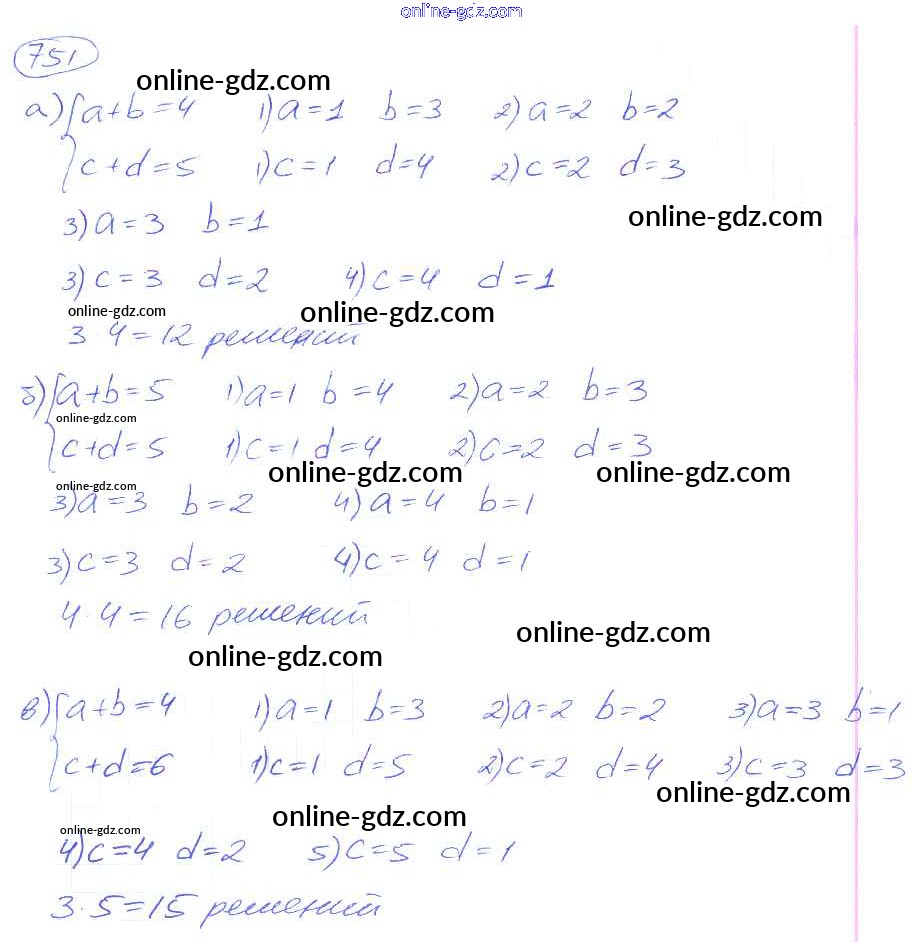 online-gdz.com
751
online-gdz.com
а) { a+b=4 1) a=1 b=3 2) a=2 b=2
c+d=5 1) c=1 d=4 2) c=2 d=3
3) a=3 b=1 online-gdz.com
3) c=3 d=2 4) c=4 d=1
online-gdz.com online-gdz.com
3·4=12 решений
б) { a+b=5 1) a=1 b=4 2) a=2 b=3
online-gdz.com
c+d=5 1) c=1 d=4 2) c=2 d=3
online-gdz.com online-gdz.com
online-gdz.com
3) a=3 b=2 4) a=4 b=1
3) c=3 d=2 4) c=4 d=1
4·4=16 решений
online-gdz.com
online-gdz.com
в) { a+b=4 1) a=1 b=3 2) a=2 b=2 3) a=3 b=1
c+d=6 1) c=1 d=5 2) c=2 d=4 3) c=3 d=3
online-gdz.com
online-gdz.com
online-gdz.com
4) c=4 d=2 5) c=5 d=1
3·5=15 решений